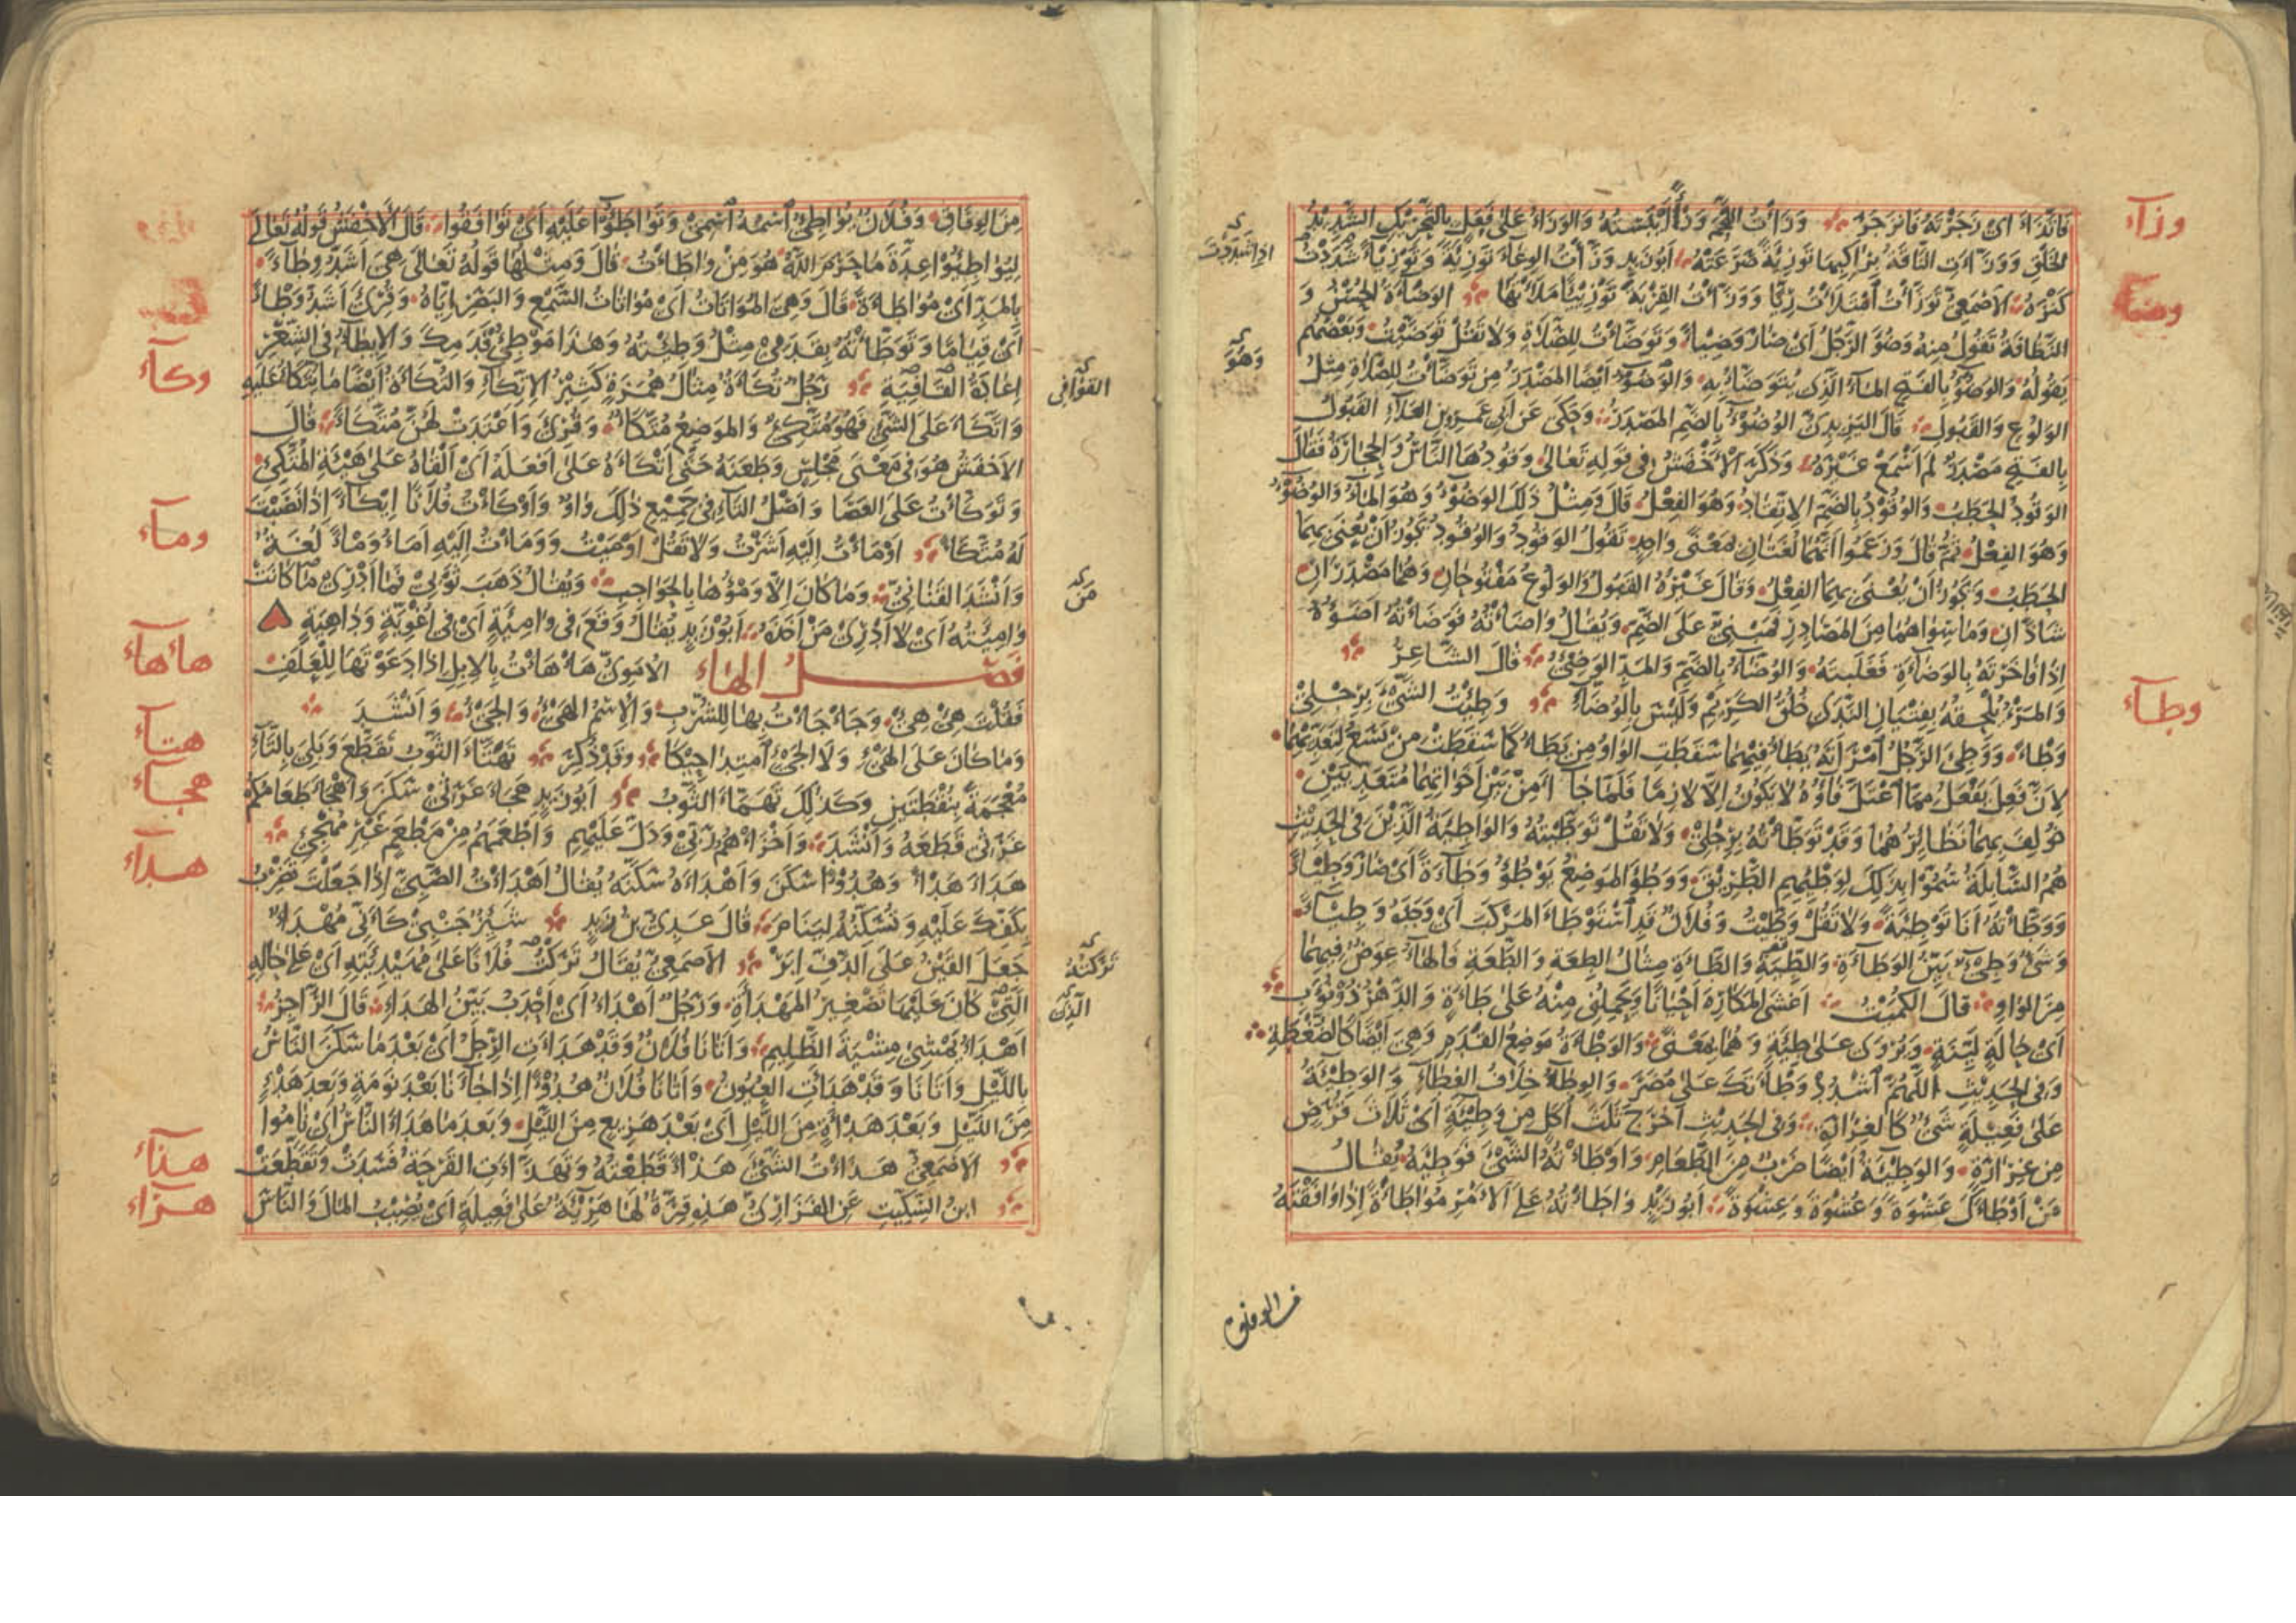 وزآء
وضآء
وطآء
اذا شددت
وهو
فَاتَّذَأَ اى زجرته فانزجر وزأ وَزَأْتُ اللحم وَزْأً أيبسته والوزأ على فعل بالتحريك الشديد
الخلق ووزأت الناقة براكبها توزئة صرعته أبو زيد وزأت الوعاء توزئة وتوزيئا شددت
كنزه الاصمعى توزأت امتلأت ريا ووزأت القربة توزيئا ملأتها الوضآءة الحسن و
النظافة تقول منه وضؤ الرجل اى صار وضيئا وتوضأت للصلاة ولا تقل توضيت وبعضهم
يقوله والوضوء بالفتح المآء الذى يتوضأ به والوضوء ايضا المصدر من توضأت للصلاة مثل
الولوع والقبول قال اليزيدى الوضوء بالضم المصدر وحكى عن ابى عمرو بن العلاء القبول
بالفتح مصدر لم اسمع غيره وذكر الأخفش فى قوله تعالى وقودها الناس والحجارة فقال
الوقود الحطب والوقود بالضم الاتقاد وهو الفعل قال ومثل ذلك الوضوء وهو المآء والوضوء
وهو الفعل ثم قال وزعموا انهما لغتان بمعنى واحد تقول الوقود والوقود يجوز ان يعنى بهما
الحطب ويجوز ان يعنى بهما الفعل وقال غيره القبول والولوع مفتوحان وهما مصدران
شاذان وما سواهما من المصادر فمبنى على الضم ويقال واضأته فوضأته اضوؤه
اذا فاخرته بالوضآءة فغلبته والوضآء بالضم والمد الوضىء قال الشاعر
والمرء يلحقه بفتيان الندى خلق الكريم وليس بالوضآء وطئت الشىء برجلى
وطأ ووطئ الرجل امرأته يطأ فيهما سقطت الواو من يطأ كما سقطت من يسع لتعديهما
لان فعل يفعل مما اعتل فاؤه لا يكون الا لازما فلما جاآ من بين اخواتهما متعديين
خولف بهما نظائرهما وقد توطأته برجلى ولا تقل توطيته والواطئة الذين فى الحديث
هم السابلة سموا بذلك لوطئهم الطريق ووطؤ الموضع يوطؤ وطآءة اى صار وطيئا
ووطأته انا توطئة ولا تقل وطيت وفلان قد استوطأ المركب اى وجده وطيئا
وشىء وطىء بين الوطآءة والطئة والطأة مثال الطعة والطعة فالهاء عوض فيهما
من الواو قال الكميت اغشى المكاره احيانا ويحملنى منه على طأة والدهر ذو نوب
اى حالة لينة ويروى على طئة وهما بمعنى والوطأة موضع القدم وهى ايضا كالضغطة
وفى الحديث اللهم اشدد وطأتك على مضر والوطآء خلاف الغطآء والوطيئة
على فعيلة شىء كالغرارة وفى الحديث اخرج ثلث اكل من وطيئة اى ثلاث قرص
من غرارة والوطيئة ايضا ضرب من الطعام واوطأته الشىء فوطئه يقال
من اوطأك عشوة وعشوة وعشوة ابو زيد واطأته على الامر مواطأة اذا وافقته
من الوفاق
وكآء
ومآء
هأهآء
هتآء
هجآء
هدآء
هذآء
هرآء
القوافى
من
تركته
الذين
من الوفاق وفلان يواطئ اسمه اسمى وتواطؤا عليه اى توافقوا قال الاخفش قوله تعالى
ليواطئوا عدة ما حرم الله هو من واطأت قال ومثلها قوله تعالى هى اشد وطآء
بالمد اى مواطأة قال وهى المواتاة اى مواتاة السمع والبصر اياه وقرئ اشد وطأ
اى قياما وتوطأته بقدمى مثل وطئته وهذا موطئ قدمك والايطآء فى الشعر
اعادة القافية رجل تكأة مثال همزة كثير الاتكآء والتكأة ايضا ما يتكأ عليه
واتكأ على الشىء فهو متكئ والموضع متكأ وقرئ واعتدت لهن متكأ قال
الاخفش هو فى معنى مجلس وطعنه حتى اتكأه على افعله اى القاه على هيئة المتكئ
وتوكأت على العصا واصل التآء فى جميع ذلك واو واوكأت فلانا ايكآء اذا نصبت
له متكأ اومأت اليه اشرت ولا تقل اوميت وومأت اليه امأ ومأ لغة
وانشد القنانى وما كان الا ومؤها بالحواجب ويقال ذهب ثوبى فما ادرى ما كانت
وامئته اى لا ادرى من اخذه ابو زيد يقال وقع فى وامئة اى فى اغوية وداهية
فصل الهاء الاموى هأهأت بالابل اذا دعوتها للعلف
فقلت هئ هئ وجأجأت بها للشرب والاسم الهىء والجىء وانشد
وما كان على الهىء ولا الجىء امتداحيكا وقد ذكر تهتأ الثوب تقطع وبلى بالتآء
معجمة بنقطتين وكذلك تهمأ الثوب ابو زيد هجأ غرثى سكن واهجأ طعامكم
غرثى قطعه وانشد واخزاهم ربى ودل عليهم واطعمهم من مطعم غير مهجئ
هدأ هدأ وهدوءا سكن واهدأه سكنه يقال اهدأت الصبى اذا جعلت تضرب
بكفك عليه وتسكنه لينام قال عدى بن زيد شئز جنبى كأنى مهدأ
جعل القين على الدف ابر الاصمعى يقال تركت فلانا على مهيدئته اى على حاله
التى كان عليها تصغير المهدأة ورجل اهدأ اى احدب بين الهدأ قال الراجز
اهدأ يمشى مشية الظليم واتانا فلان وقد هدأت الرجل اى بعد ما سكن الناس
بالليل واتانا وقد هدأت العيون واتانا فلان هدوءا اذا جآءنا بعد نومة وبعد هدء
من الليل وبعد هدأة من الليل اى بعد هزيع من الليل وبعد ما هدأ الناس اى ناموا
الاصمعى هذأت الشىء هذأ قطعته وتهذأت القرحة فسدت وتقطعت
ابن السكيت عن الفزارى هذه قرة لها هريئة على فعيلة اى يصيب المال والناس